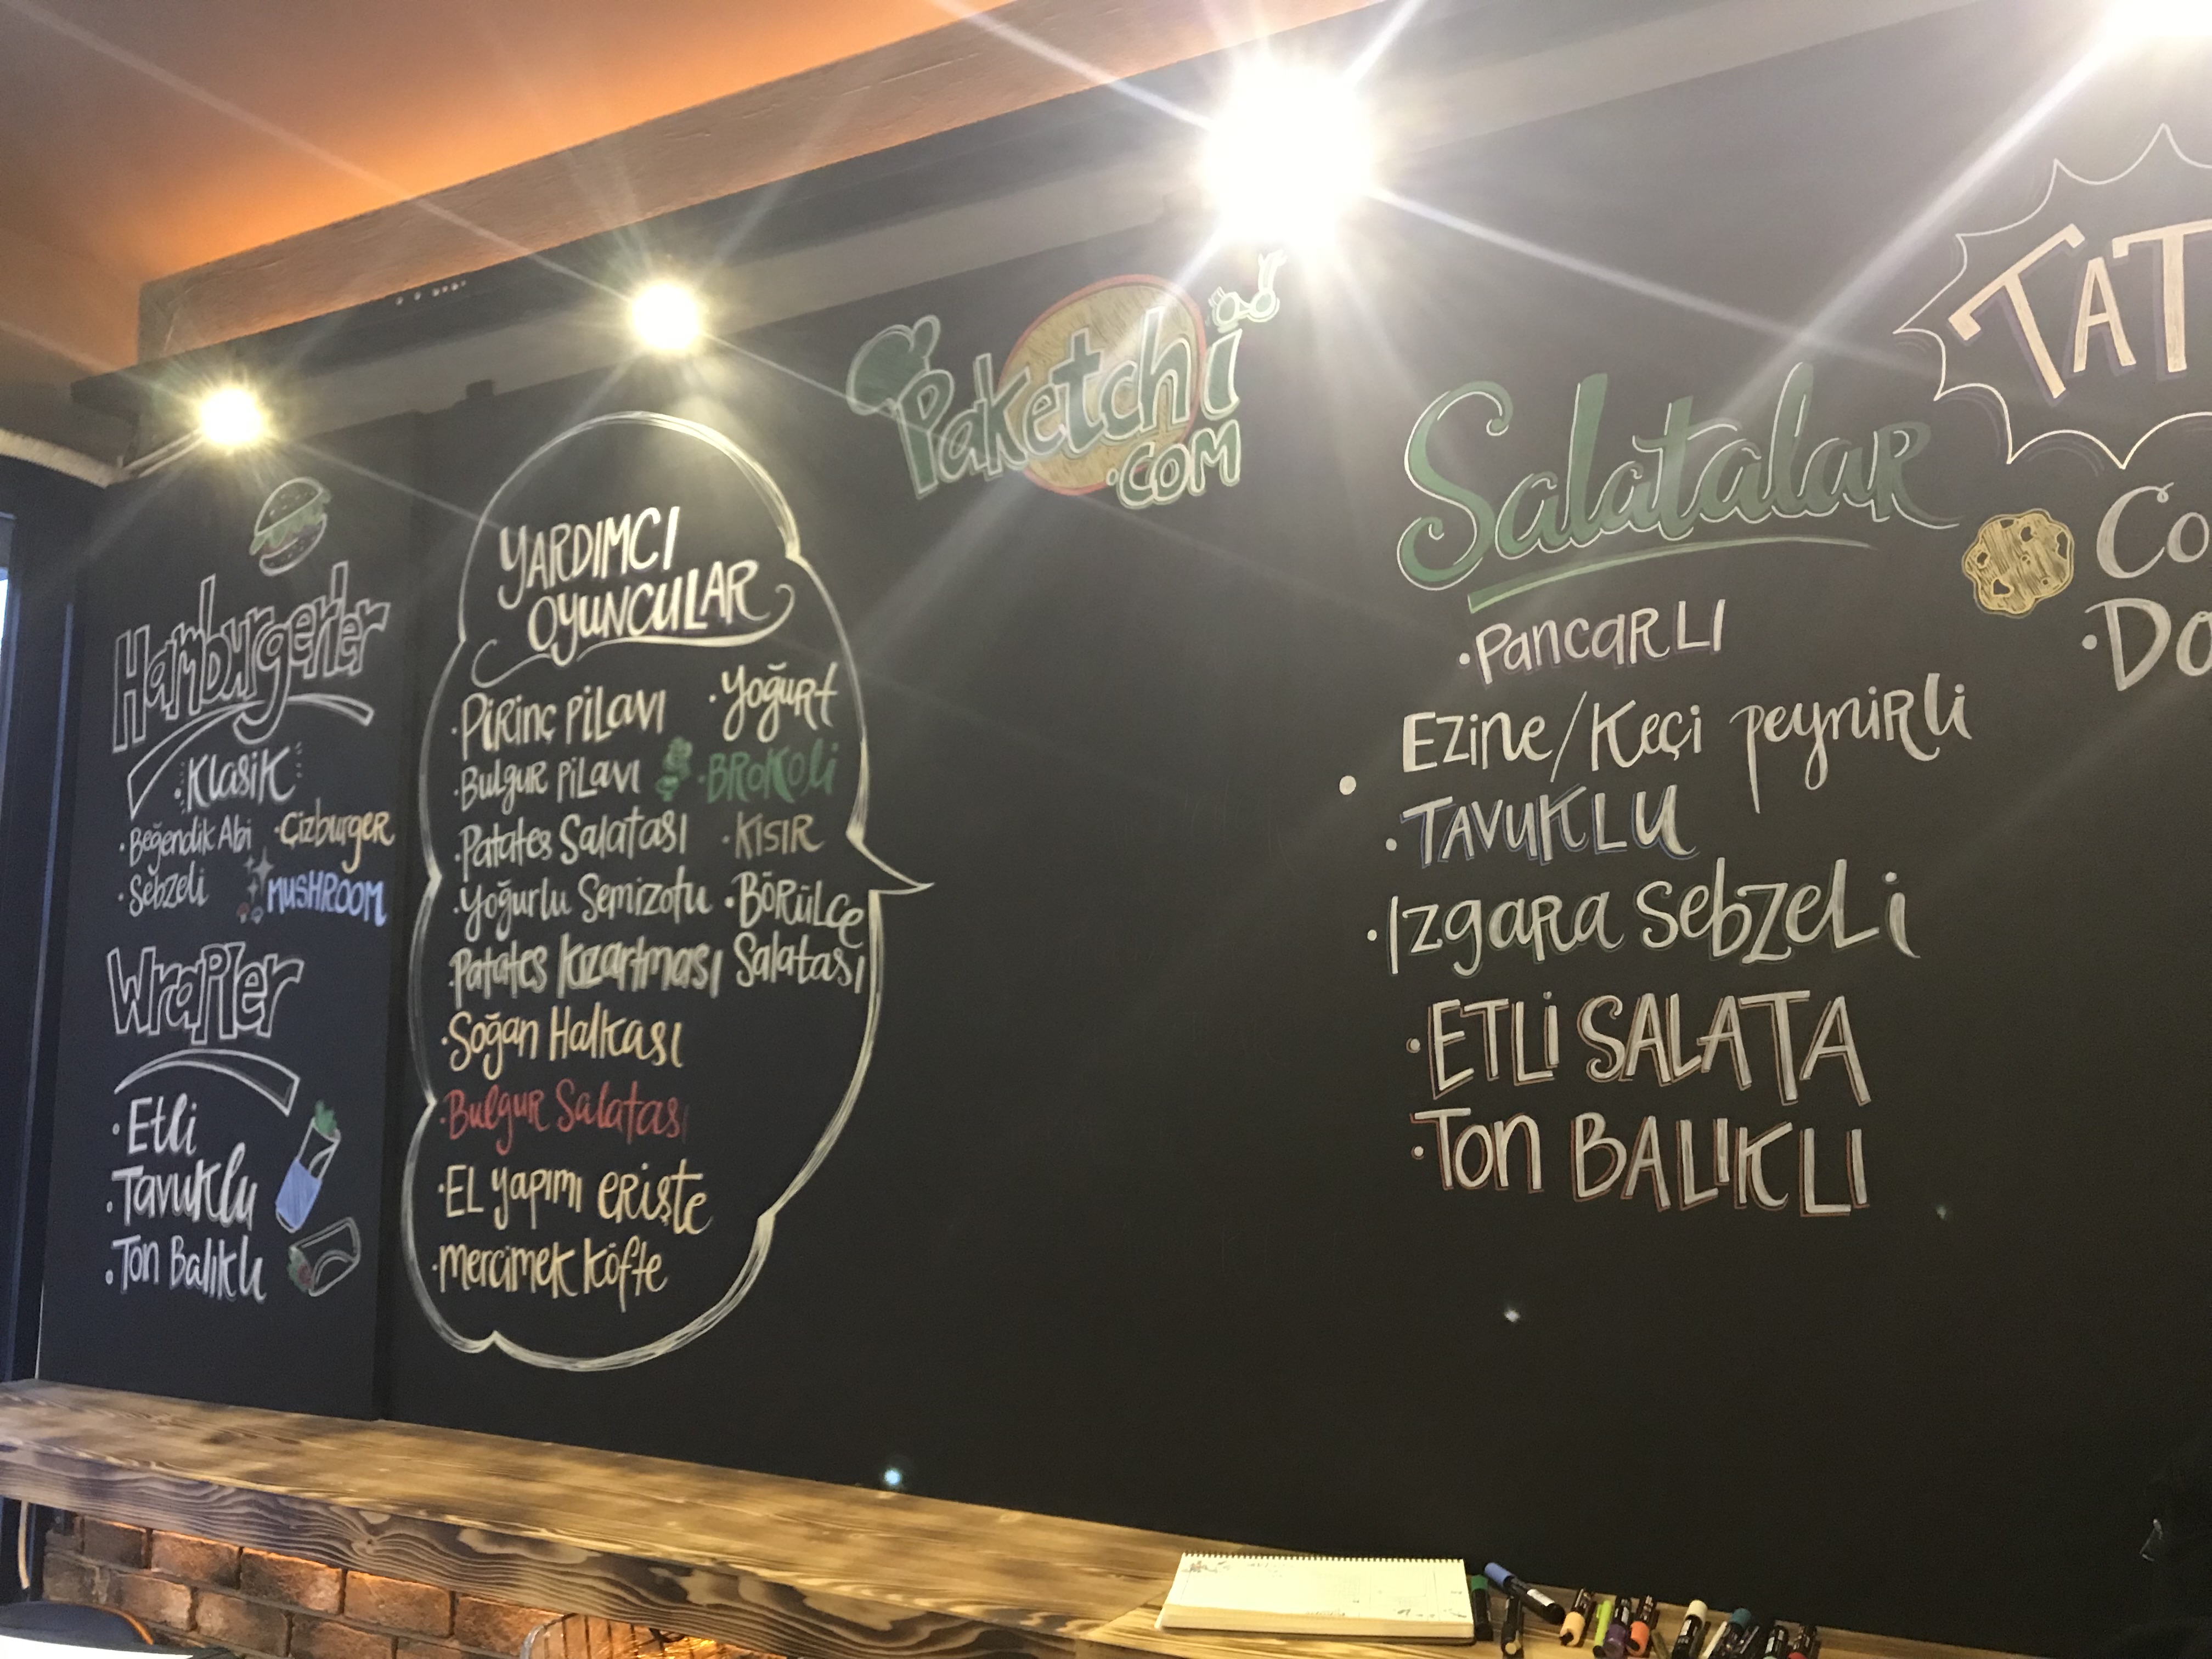 Hamburgerler
·Klasik
·Beğendik Abi ·Çizburger
·Sebzeli MUSHROOM
Wrapler
·Etli
·Tavuklu
·Ton Balıklı
YARDIMCI
OYUNCULAR
·Pirinç Pilavı ·Yoğurt
·Bulgur Pilavı ·BROKOLİ
·Patates Salatası ·KISIR
·Yoğurlu Semizotu ·BÖRÜLCE
·Patates Kızartması Salatası
·Soğan Halkası
·Bulgur Salatası
·EL yapımı erişte
·mercimek köfte
Paketchi
.COM
Salatalar
·PancaRLI
·Ezine/Keçi peyniRli
·TAVUKLU
·Izgara SebzeLi
·ETLİ SALATA
·Ton BALIKLI